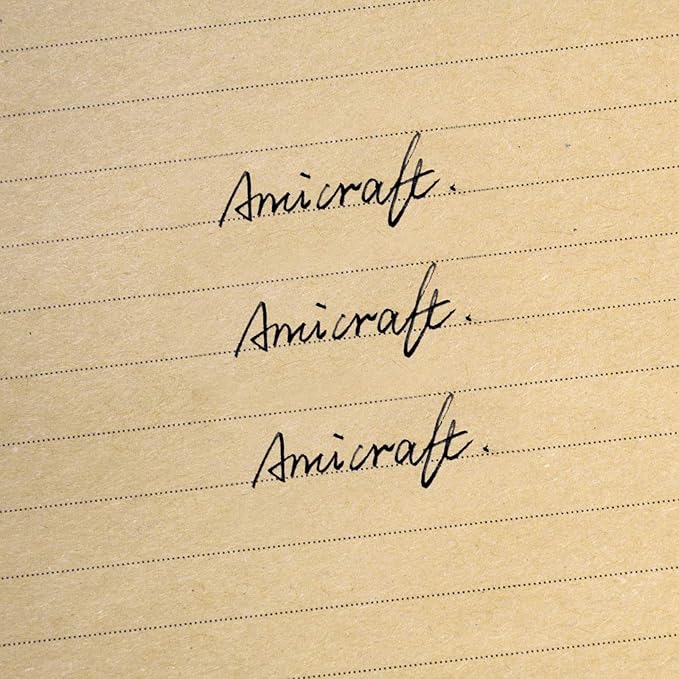 Amicraft.
Amicraft.
Amicraft.